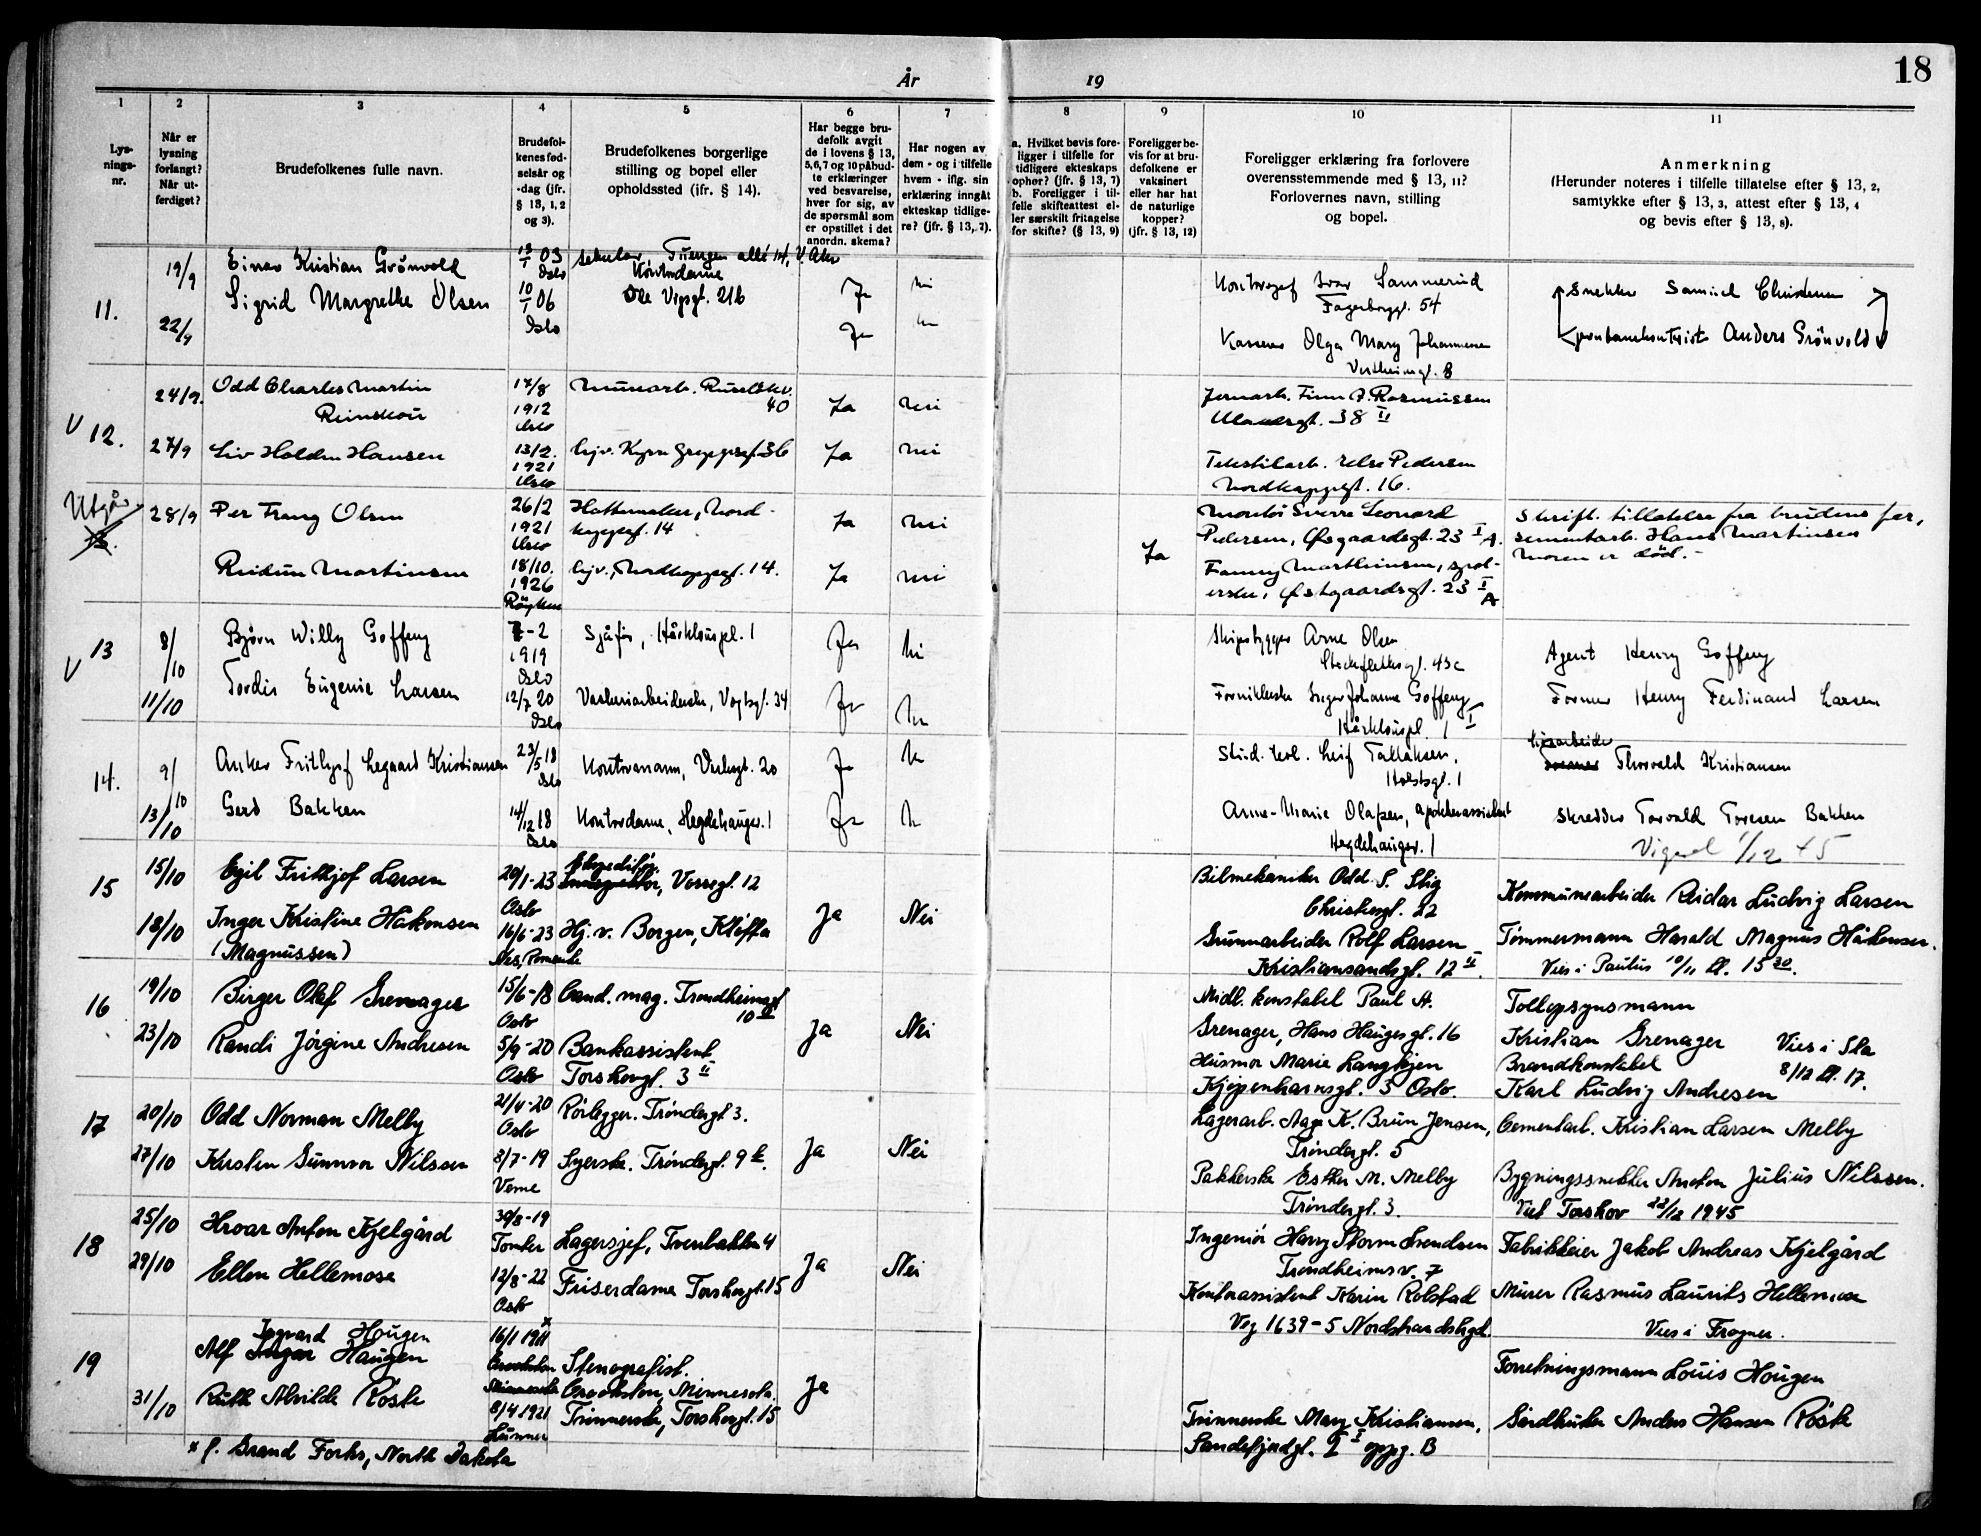 18
År
19
1
2
3
4
5
6
7
8
9
10
11
Lys-
nings-
nr.
Når er
lysning
forlangt?
Når ut-
ferdiget?
Brudefolkenes fulle navn.
Brudefol-
kenes fød-
selsår og
-dag (jfr.
§ 13, 1, 2
og 3).
Brudefolkenes borgerlige
stilling og bopel eller
opholdssted (jfr. § 14).
Har begge bru-
defolk avgit
de i lovens § 13,
5,6,7 og 10 påbud-
te erklæringer
ved besvarelse,
hver for sig, av
de spørsmål som
er opstillet i det
anordn. skema?
Har nogen av
dem - og i tilfelle
hvem - iflg. sin
erklæring inngåt
ekteskap tidlige-
re? (jfr. § 13, 7).
a. Hvilket bevis fore-
ligger i tilfelle for
tidligere ekteskaps
ophør? (jfr. § 13, 7)
b. Foreligger i til-
felle skifteattest el-
ler særskilt fritagelse
for skifte? (§ 13, 9)
Foreligger be-
vis for at bru-
defolkene er
vaksinert
eller har hat
de naturlige
kopper?
(jfr. § 13, 12)
Foreligger erklæring fra forlovere
overensstemmende med § 13, 11?
Forlovernes navn, stilling
og bopel.
Anmerkning
(Herunder noteres i tilfelle tillatelse efter § 13, 2,
samtykke efter § 13, 3, attest efter § 13, 4
og bevis efter § 13, 8).
11.
19/9
22/9
Einar Kristian Grönvold
Sigrid Margrethe Olsen
13/1 03
Oslo
10/1 06
Oslo
Tuengen allé 14, V. Aker
Kontordame
Ole Vigsgt. 21b
Ja
Ja
Fagerborggt. 54
Kasserer Olga Mary Johannesen
Snekker Samuel
Anders Grönvold
V 12.
24/9.
27/9
Odd Charles Martin
Reinskou
Liv Holden Hansen
17/8
1912
Oslo
13/2.
1921
Oslo
40
Ja
Ja
nei
nei
Jernarb. Finn A. Rasmussen
38 II
Tekstilarb. Else Pedersen
Nordkappgt. 16.
Utgår
28/9
Per Franz Olsen
Reidun Martinsen
26/2
1921
Oslo
18/10.
1926
Röyken
Hattemaker, Nord-
kappgt. 14
hjv., Nordkappgt. 14.
Ja
Ja
nei
nei
Ja
Montör Sverre Leonard
Pedersen, 23 I A.
Fanny Marthinsen, spol-
erske, 23 I A
Skrift. tillatelse fra brudens far,
sementarb. Hans Martinsen
Moren er död. -
V 13
8/10
11/10
Björn Willy Goffeng
Tordis Eugenie Larsen
7-2
1919
Oslo
12/7 20
Oslo
Sjåfør, Hårklouspl. 1
Vaskeriarbeiderske, Vogtsgt. 34
Ja
Ja
Skipsbygger Arne Olsen
Stockflethsgt. 43c
Inger Johanne Goffeng
Hårklouspl. 1 I
Agent Henry Goffeng
Former Henry Ferdinand Larsen
14.
9/10
13/10
Anker Frithjof Legaard Kristiansen
Gerd Bakken
23/5 18
Oslo
14/12 18
Oslo
Kontormann, 20
Kontordame, Hegdehaugsv. 1
Ja
Ja
Stud. real. Leif Tallaksen,
Holstsgt. 1
Anne-Marie Olafsen, apotekerassistent
Hegdehaugsv. 1
Thorvald Kristiansen
Skredder Torvald Toresen Bakken
Vigsel 1/12 45
15
15/10
18/10
Egil Frithjof Larsen
Inger Kristine Håkonsen
(Magnussen)
20/1-23
Oslo
16/6-23
Nes, Romerike
Ekspeditør,
Vossegt. 12
Hj. v. Borgen, Kløfta
Ja
Nei
Bilmekaniker Odd S. Stig
Christiesgt. 22
Grunnarbeider Rolf Larsen
Kristiansandsgt. 12 II.
Kommunearbeider Reidar Ludvig Larsen
Tömmermann Harald Magnus Håkonsen.
Vies i Paulus 10/11 kl. 15 30.
16
19/10
23/10
Birger Olaf Grenager
Randi Jörgine Andresen
15/6-18
Oslo
5/9-20
Oslo
Cand. mag. Trondheimsgt
10 II
Bankassistent
Torshovgt. 3 II
Ja
Nei
Midl. konstabel Paul A.
Grenager, Hans Haugesgt. 16
Husmor Marie Langkjen
Kjøpenhavnsgt. 3 Oslo.
Tollopsynsmann
Kristian Grenager
Brandkonstabel
Karl Ludvig Andresen
Vies i Sta
8/12 kl. 17.
17
20/10
27/10
Odd Norman Melby
Kirsten Gunnvor Nilssen
21/4-20
Oslo
3/7-19
Verne
Rörlegger. Tröndergt 3.
Syerske. Tröndergt. 9 b.
Ja
Nei
Lagerarb. Aage K. Bruun Jensen,
Tröndergt. 5
Pakkerske Esther M. Melby
Tröndergt. 3.
Cementarb. Kristian Larsen Melby
Bygningssnekker Anton Julius Nilssen.
Viet Torshov 22/12 1945
18
25/10
29/10
Hroar Anton Kjelgård
Ellen Hellemose
30/8-19
12/8-22
Oslo
Lagersjef, Tverrbakken 4
Friserdame Torshovgt. 15
Ja
Nei
Ingeniör Harry Storm Svendsen
Trondheimsv. 7
Kontorassistent Karin Rolstad
Veg 1639-5 Nordstrandshgd.
Fabrikkeier Jakob Andreas Kjelgård
Murer Rasmus Laurits Hellemose
Vies i Frogner.
19
31/10
Ingvard Hougen
Alf Haugen
Ruth Alvilde Röste
16/1 1911 x
Crookston
Minnesota
8/4 1921
Lunner
Stenografist.
Crookston, Minnesota.
Trinnerske, Torshovgt. 15
Ja
Trinnerske Mary Kristiansen,
Sandefjordgt. 2 I oppg. B
Forretningsmann Louis Hougen
Gårdbruker Anders Hansen Röste
x f. Grand Forks, North Dakota